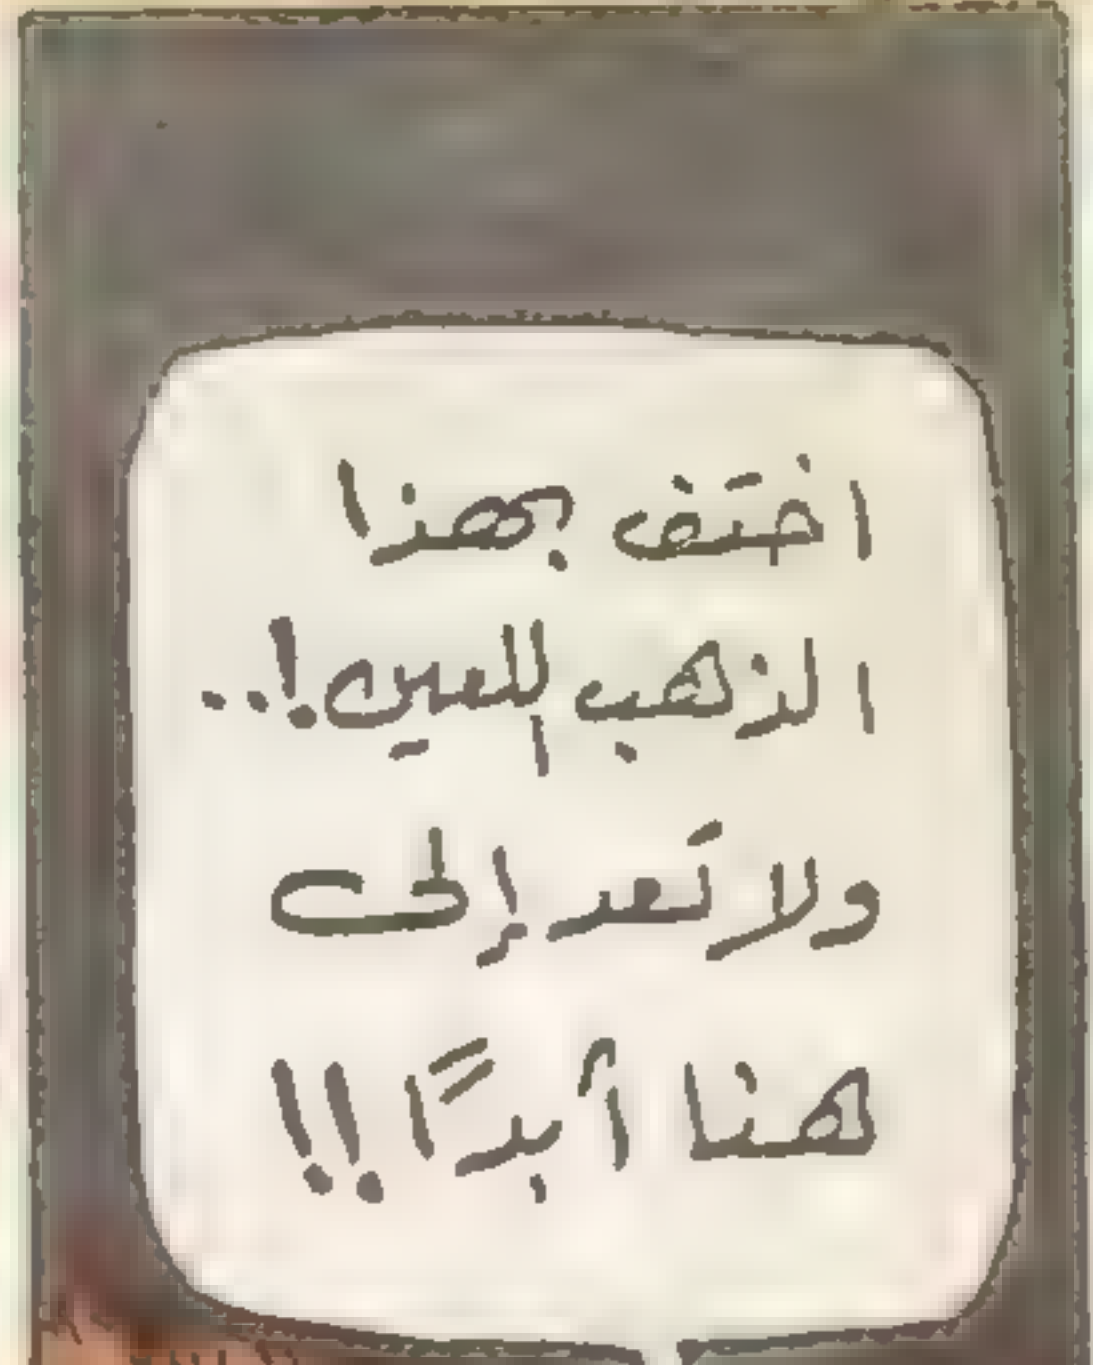 اختف بهذا
الذهب اللعين!..
ولا تعد إلى
هنا أبدًا!!